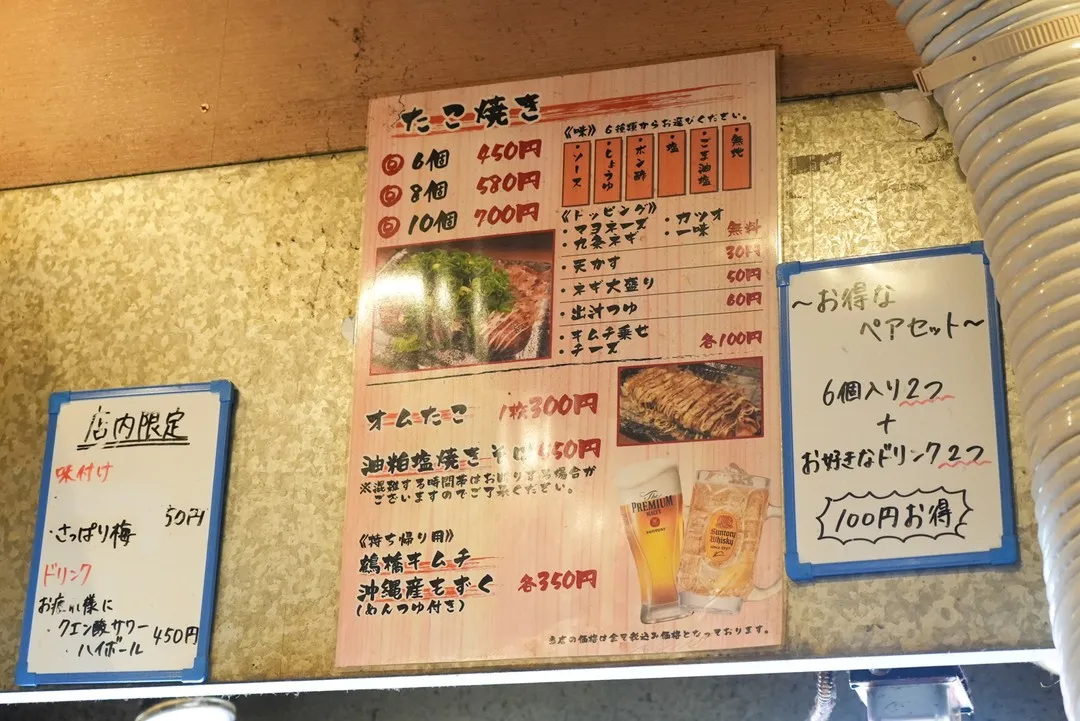 たこ焼き
6個 450円
8個 580円
10個 700円
《味》 6種類からお選びください。
・ソース
・しょうゆ
・ポン酢
・塩
・ごま油塩
・無地
《トッピング》
・マヨネーズ ・カツオ
・九条ネギ ・一味 無料
・天かす 30円
・ネギ大盛り 50円
・出汁つゆ 60円
・キムチ乗せ
・チーズ 各100円
オムたこ 1枚300円
油粕塩焼きそば 50円
※混雑する時間帯はお断りする場合が
ございますのでご了承ください。
《持ち帰り用》
鶴橋キムチ
沖縄産もずく 各350円
(めんつゆ付き)
The
PREMIUM
MALT'S
SUNTORY
Suntory
Whisky
当店の価格は全て税込み価格となっております。
店内限定
味付け
・さっぱり梅 50円
ドリンク
お疲れ様に
・クエン酸サワー
・ハイボール 450円
〜お得な
ペアセット〜
6個入り2つ
+
お好きなドリンク2つ
100円お得